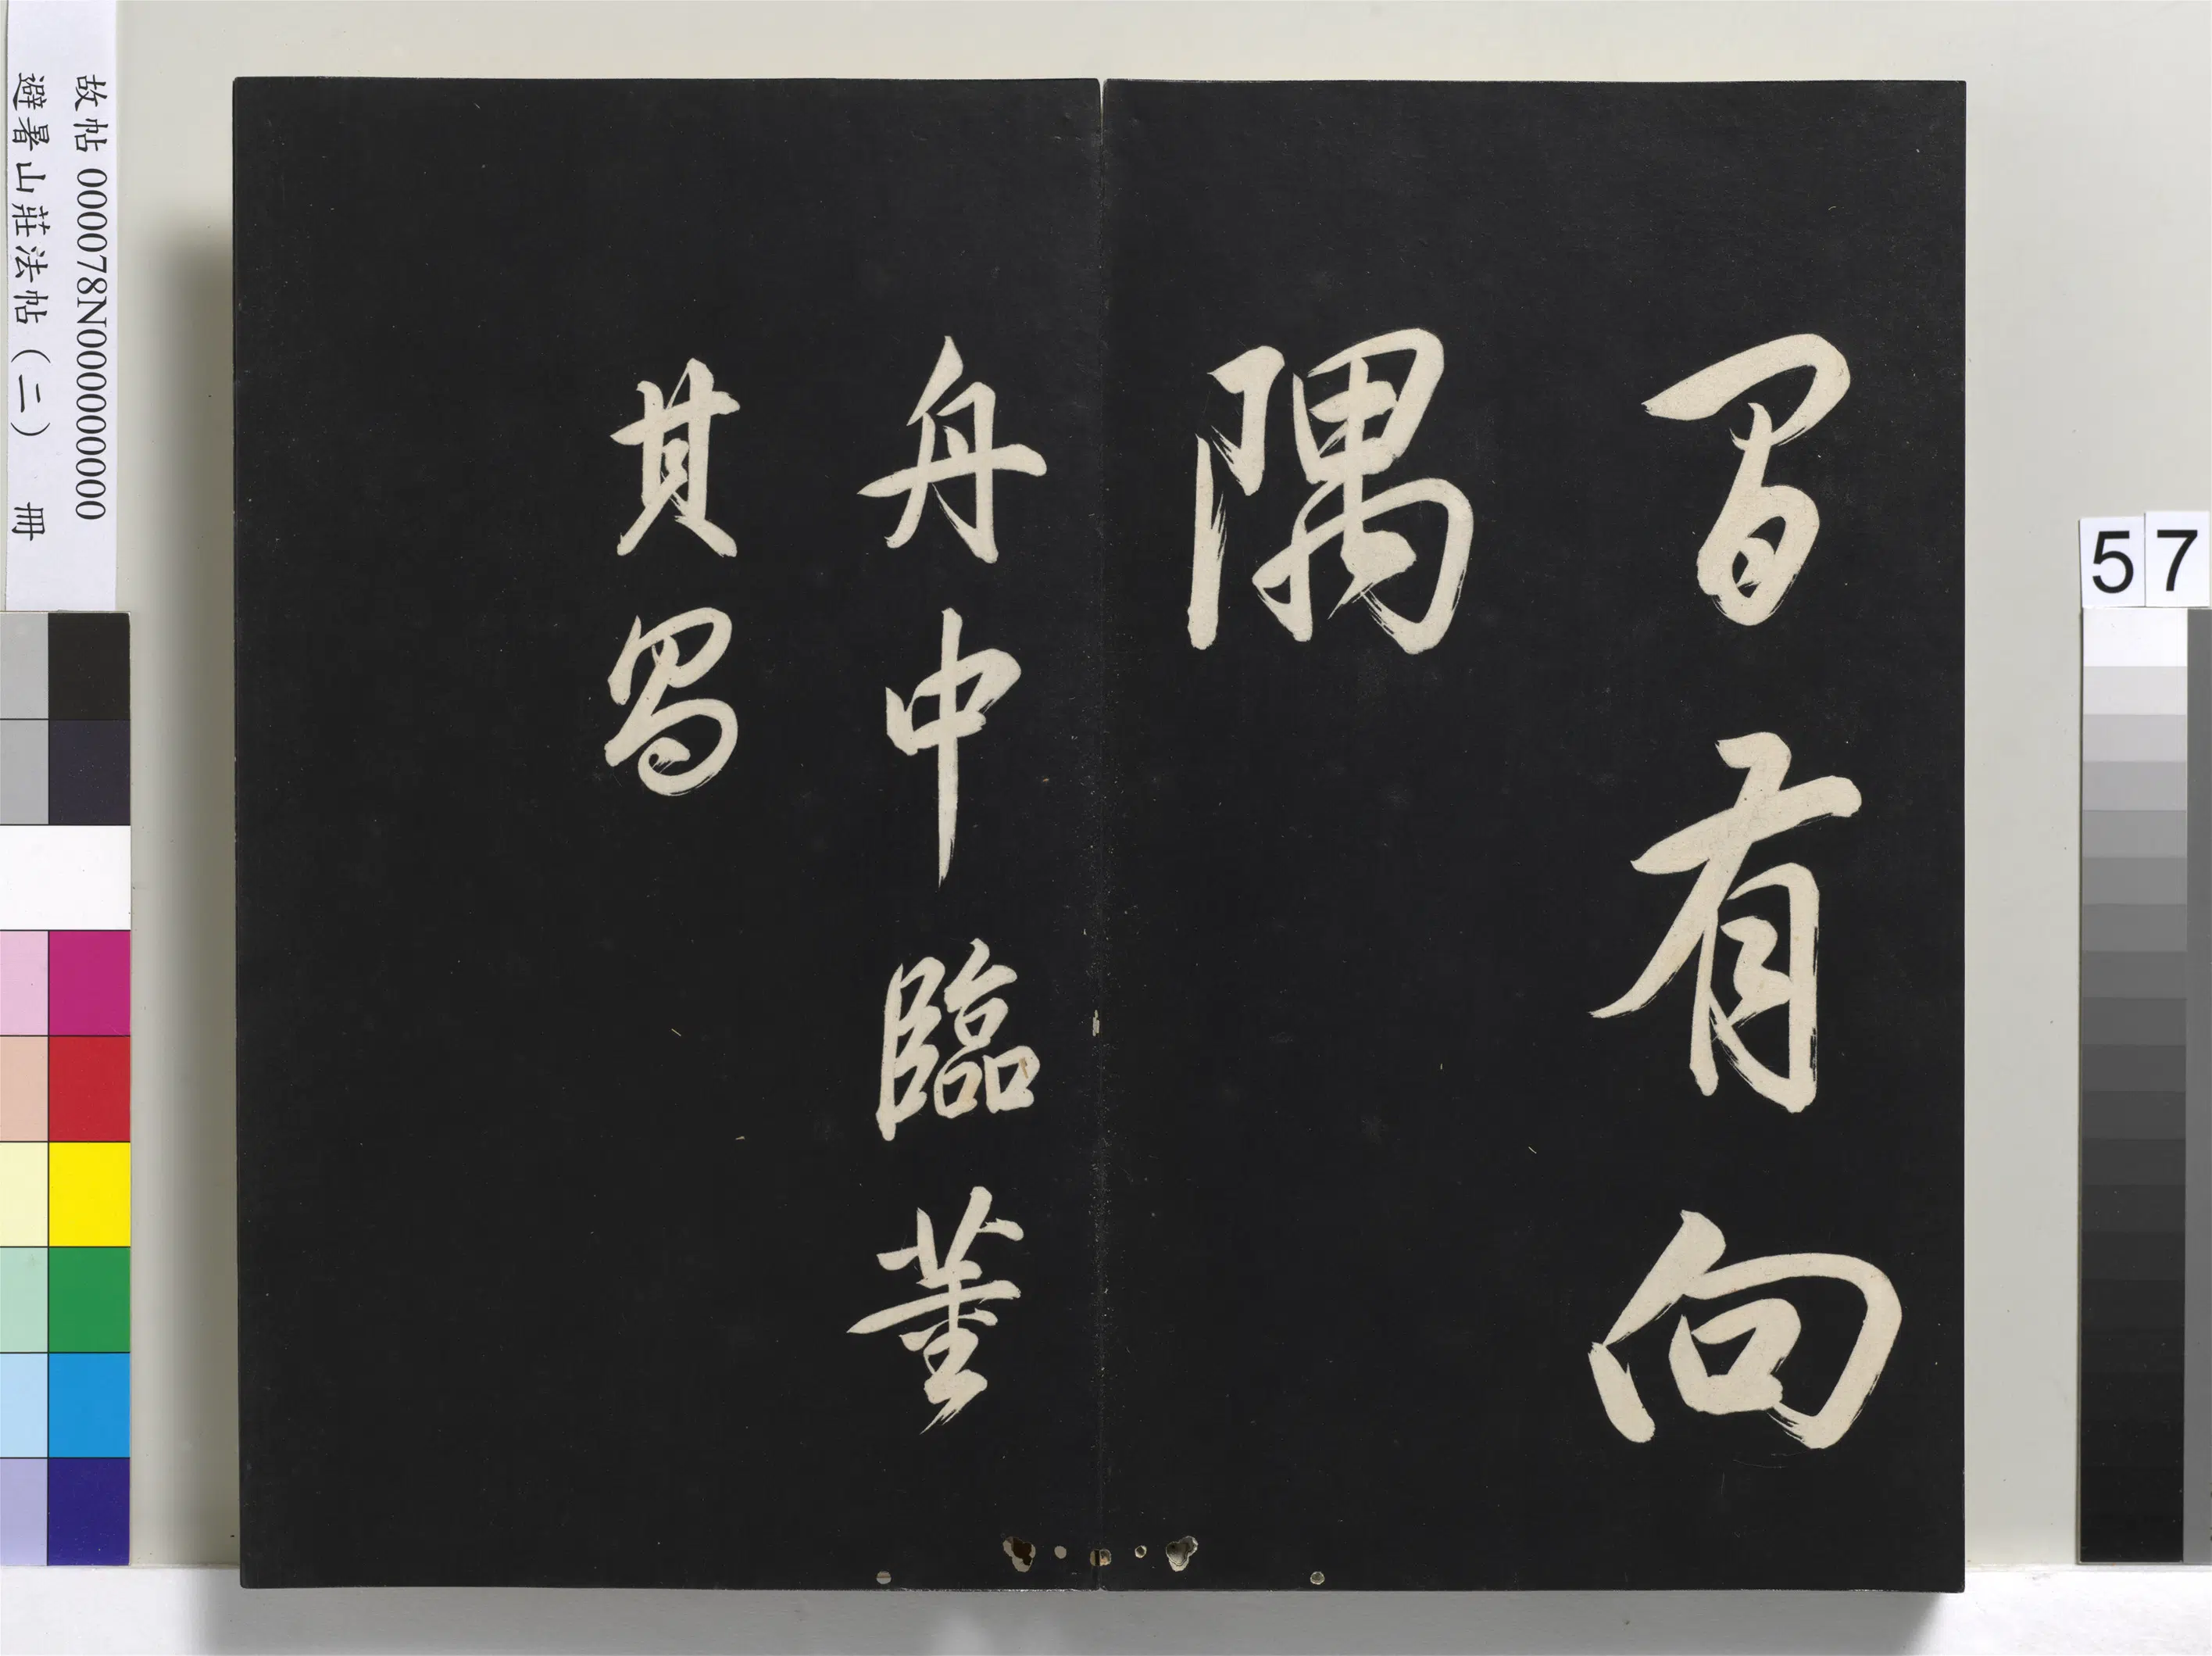 有向
隅
舟中臨董
其昌
故帖 000078N000000000
避暑山莊法帖（二） 冊
57